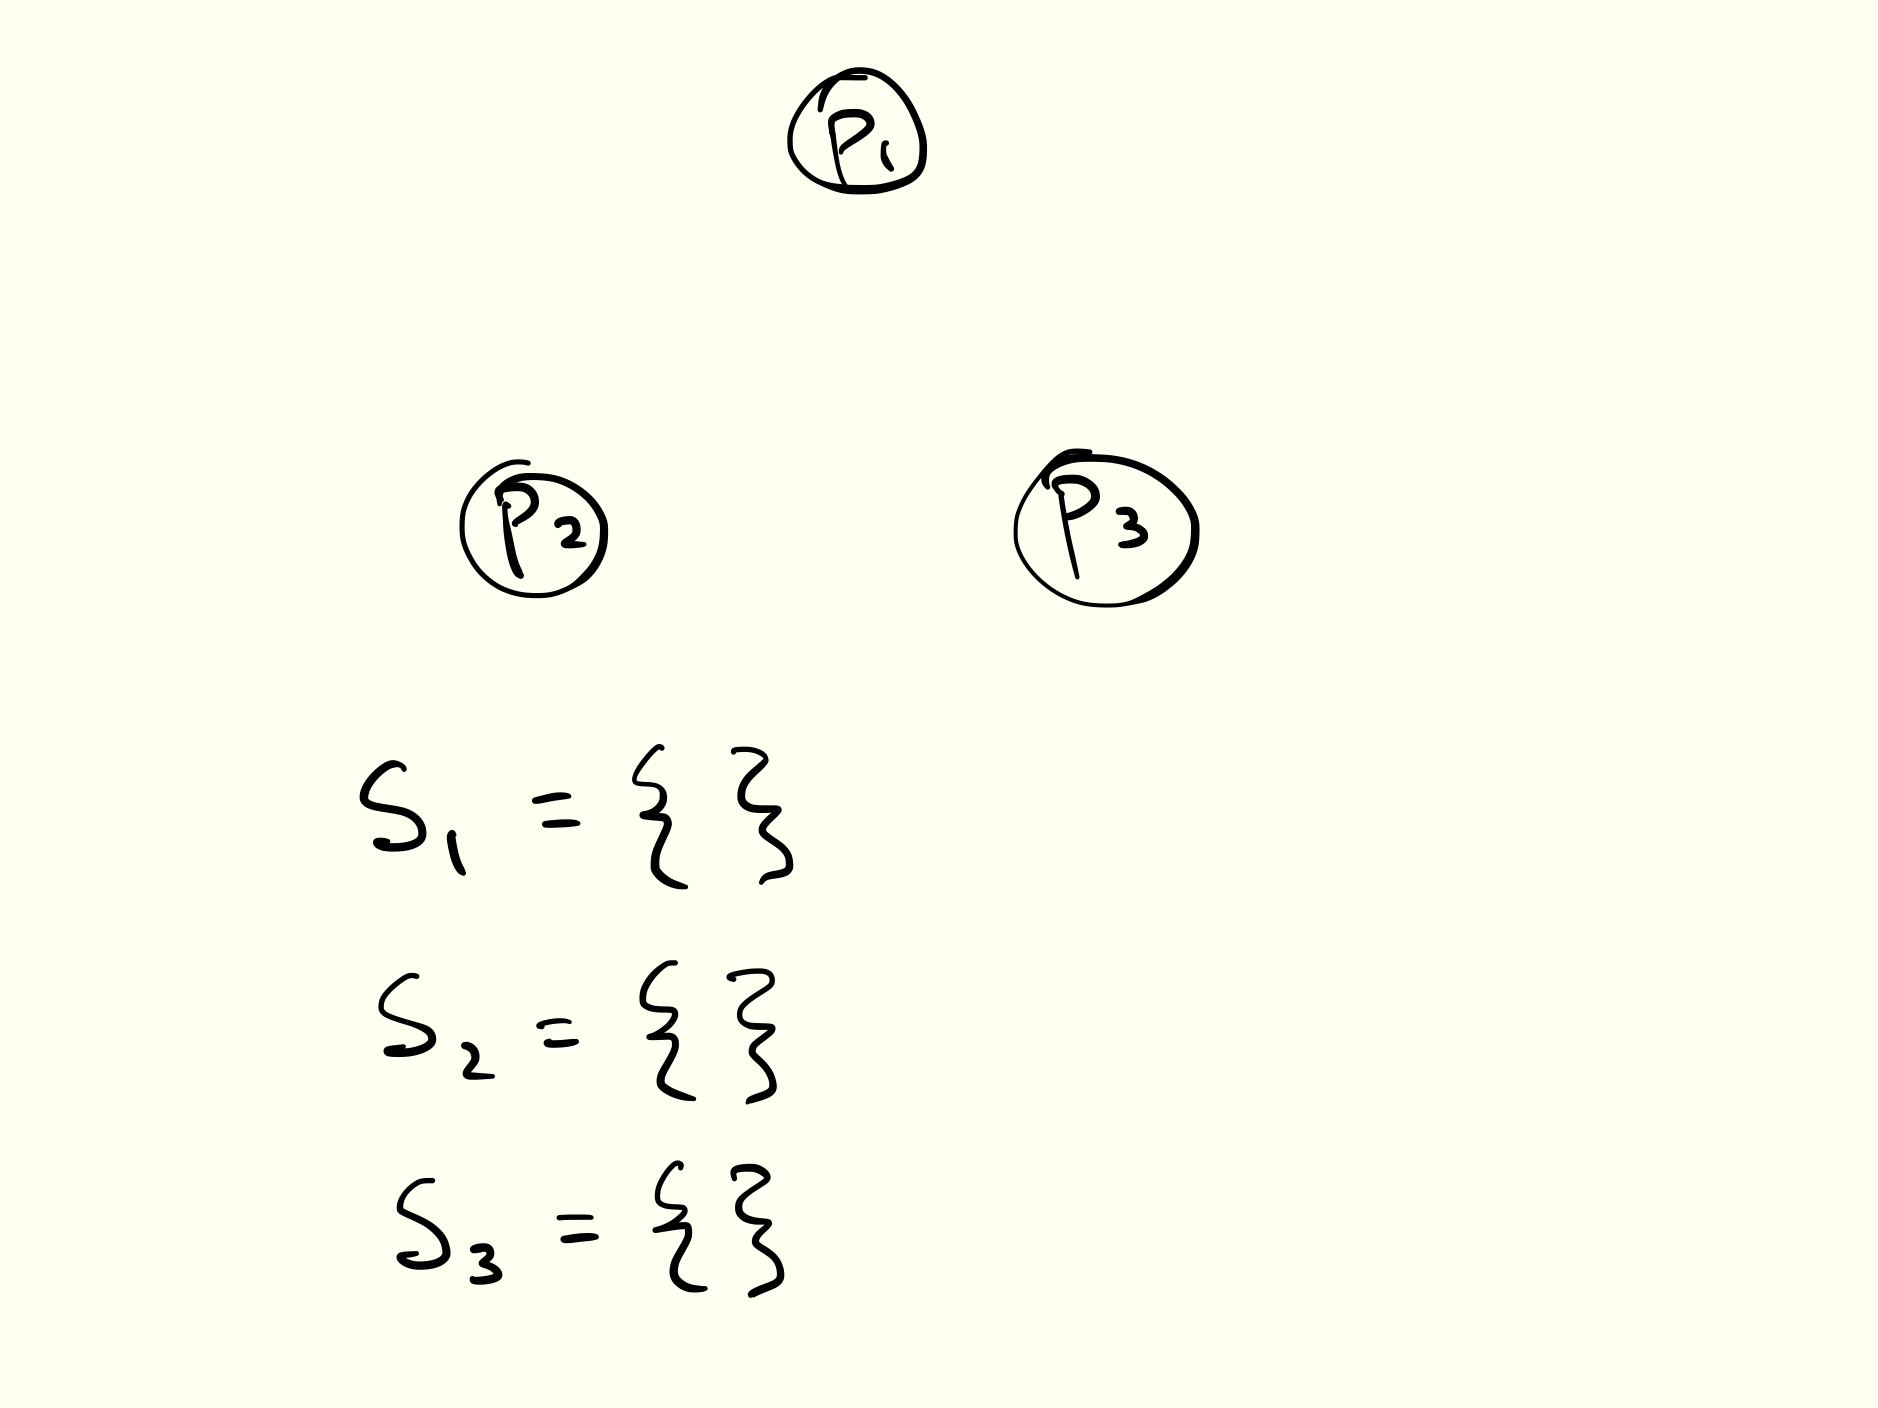 P1
P2 P3
S1 = { }
S2 = { }
S3 = { }